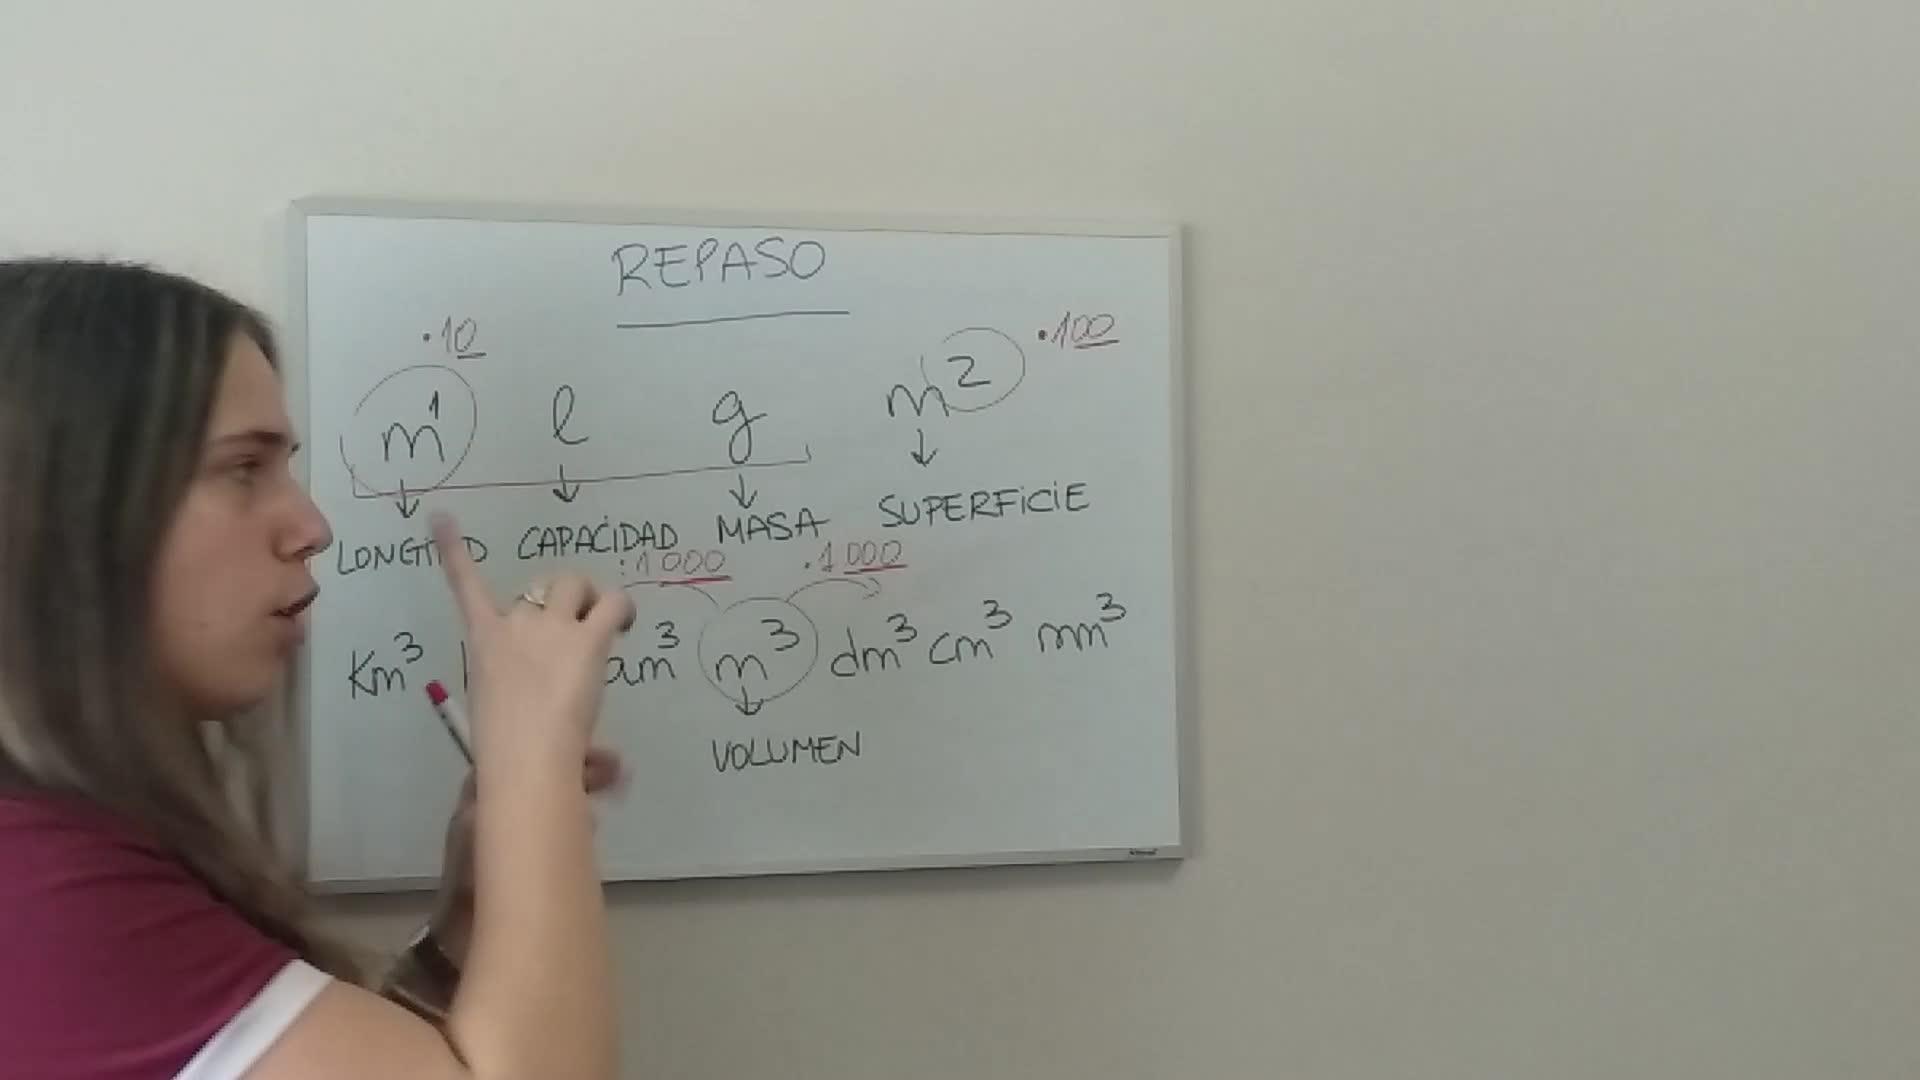 REPASO
·10 ·100
m¹ l g m²
LONGITUD CAPACIDAD MASA SUPERFICIE
:1000 ·1000
Km³ am³ m³ dm³ cm³ mm³
VOLUMEN